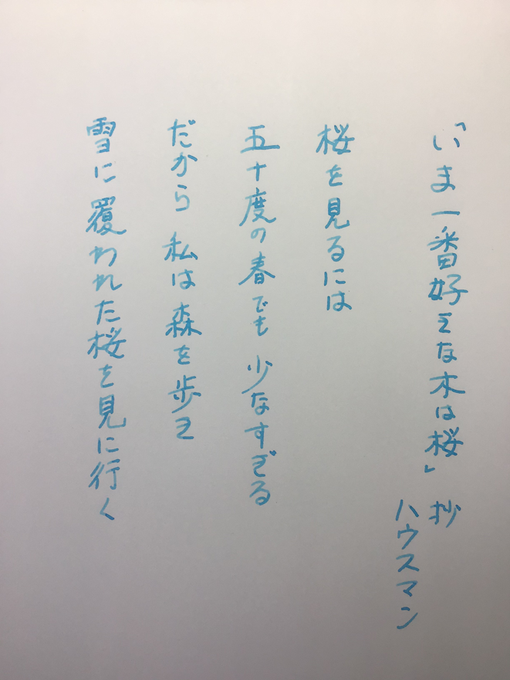 「いま一番好きな木は桜」抄
ハウスマン
桜を見るには
五十度の春でも少なすぎる
だから私は森を歩き
雪に覆われた桜を見に行く